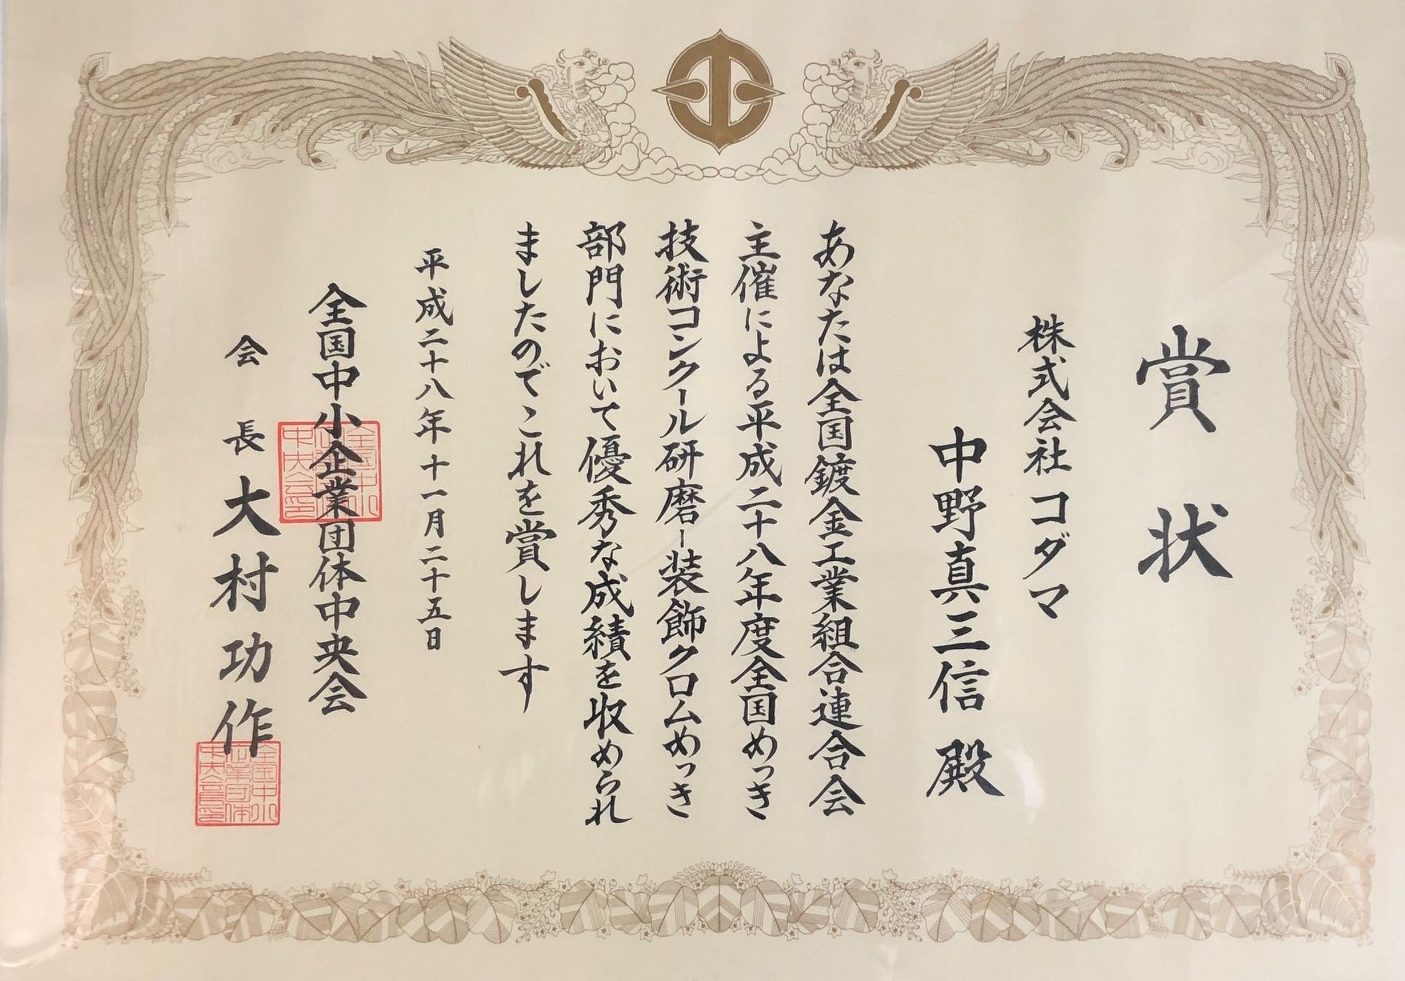 賞状
株式会社コダマ
中野真三信殿
あなたは全国鍍金工業組合連合会
主催による平成二十八年度全国めっき
技術コンクール研磨ー装飾クロムめっき
部門において優秀な成績を収められ
ましたのでこれを賞します
平成二十八年十一月二十五日
全国中小企業団体中央会
会長大村功作